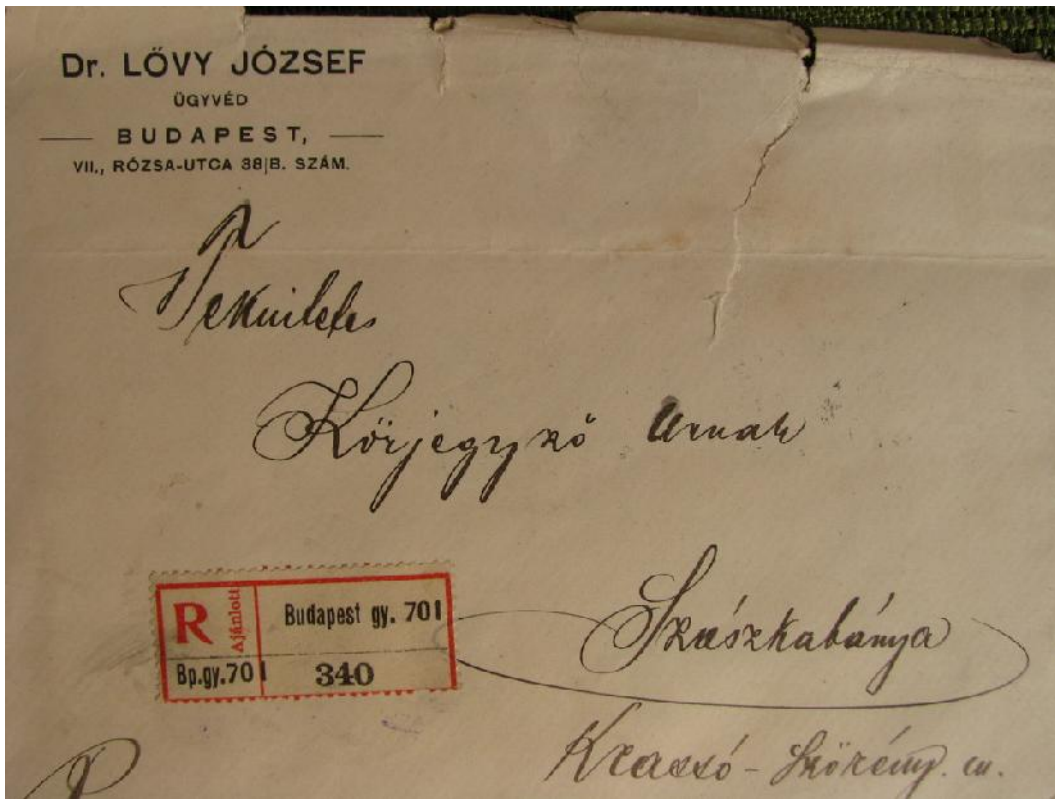 Dr. LŐVY JÓZSEF
ÜGYVÉD
BUDAPEST,
VII., RÓZSA-UTCA 38|B. SZÁM.
Tekintetes
Körjegyző Urnak
R Ajánlott
Budapest gy. 701
Bp.gy.701
340
Szászkabánya
Krassó-Szörény. m.